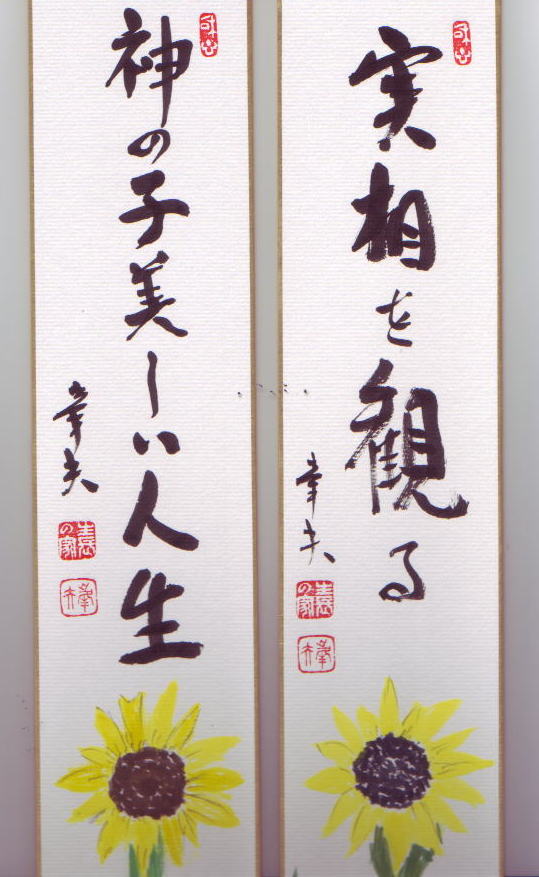 実相を観る
幸夫
神の子美しい人生
幸夫